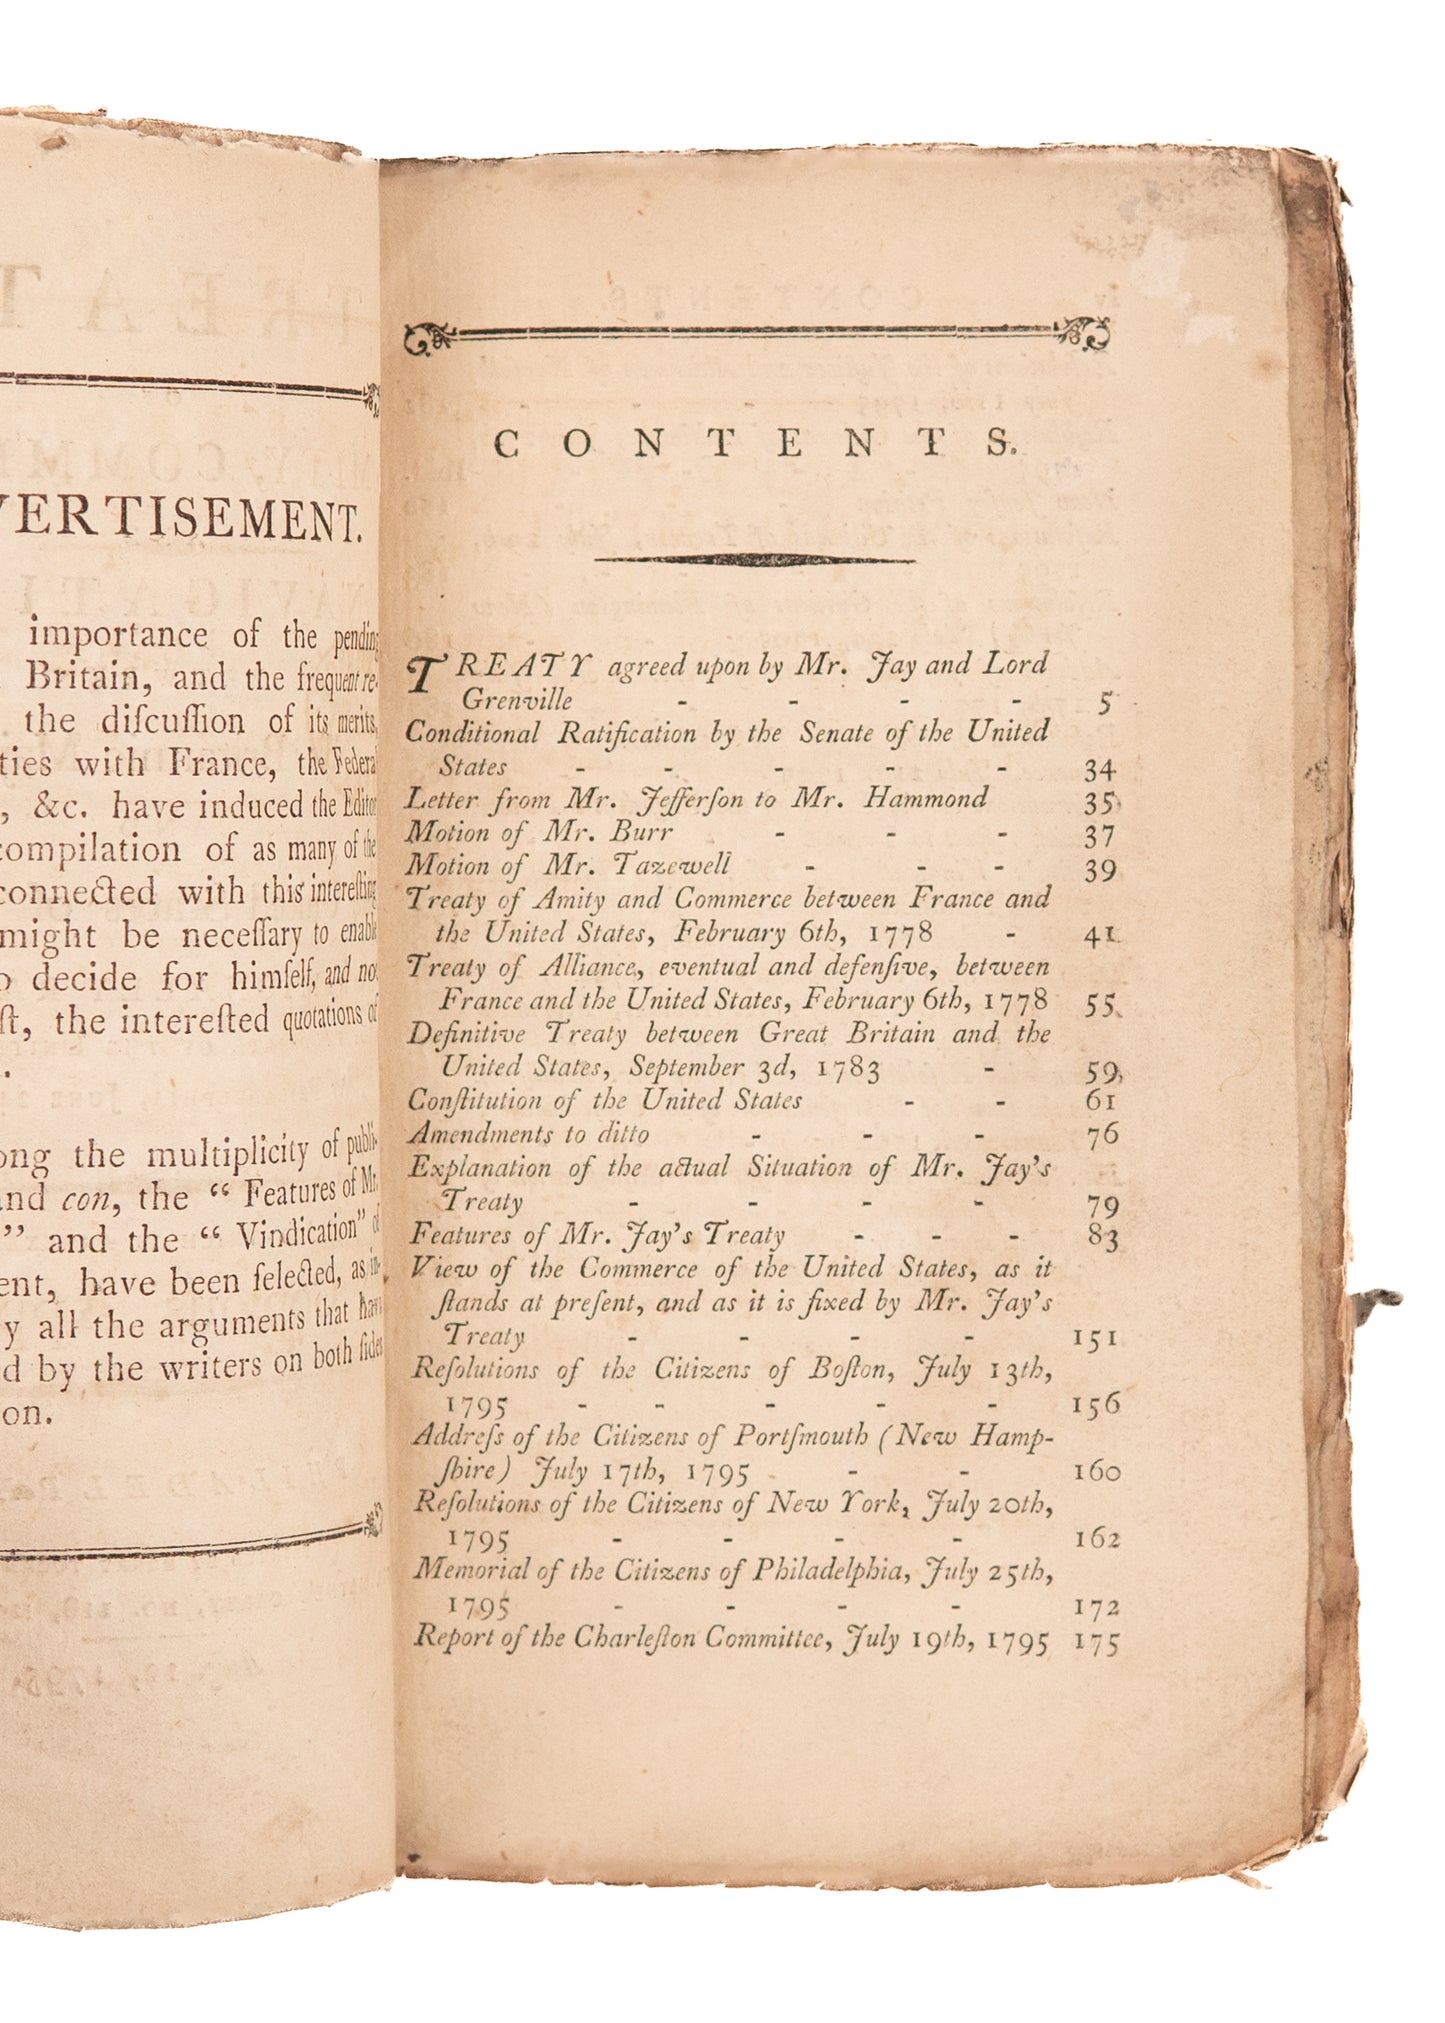 VERTISEMENT.
importance of the pending
Britain, and the frequent re-
the diſcuſſion of its merits,
ties with France, the Federal
, &c. have induced the Editor
compilation of as many of the
connected with this intereſting
might be neceſſary to enable
decide for himſelf, and not
ſt, the intereſted quotations of
.
ong the multiplicity of publi-
and con, the “ Features of Mr.
” and the “ Vindication” of
ent, have been ſelected, as in-
y all the arguments that have
d by the writers on both ſides
on.
CONTENTS.
TREATY agreed upon by Mr. Jay and Lord
Grenville - - - - 5
Conditional Ratification by the Senate of the United
States - - - - - 34
Letter from Mr. Jefferſon to Mr. Hammond 35
Motion of Mr. Burr - - - 37
Motion of Mr. Tazewell - - - 39
Treaty of Amity and Commerce between France and
the United States, February 6th, 1778 - 41
Treaty of Alliance, eventual and defenſive, between
France and the United States, February 6th, 1778 55
Definitive Treaty between Great Britain and the
United States, September 3d, 1783 - 59
Conſtitution of the United States - - 61
Amendments to ditto - - - 76
Explanation of the actual Situation of Mr. Jay's
Treaty - - - - 79
Features of Mr. Jay's Treaty - - - 83
View of the Commerce of the United States, as it
ſtands at preſent, and as it is fixed by Mr. Jay's
Treaty - - - - 151
Reſolutions of the Citizens of Boſton, July 13th,
1795 - - - - - 156
Addreſs of the Citizens of Portſmouth (New Hamp-
ſhire) July 17th, 1795 - - 160
Reſolutions of the Citizens of New York, July 20th,
1795 - - - - 162
Memorial of the Citizens of Philadelphia, July 25th,
1795 - - - - 172
Report of the Charleſton Committee, July 19th, 1795 175